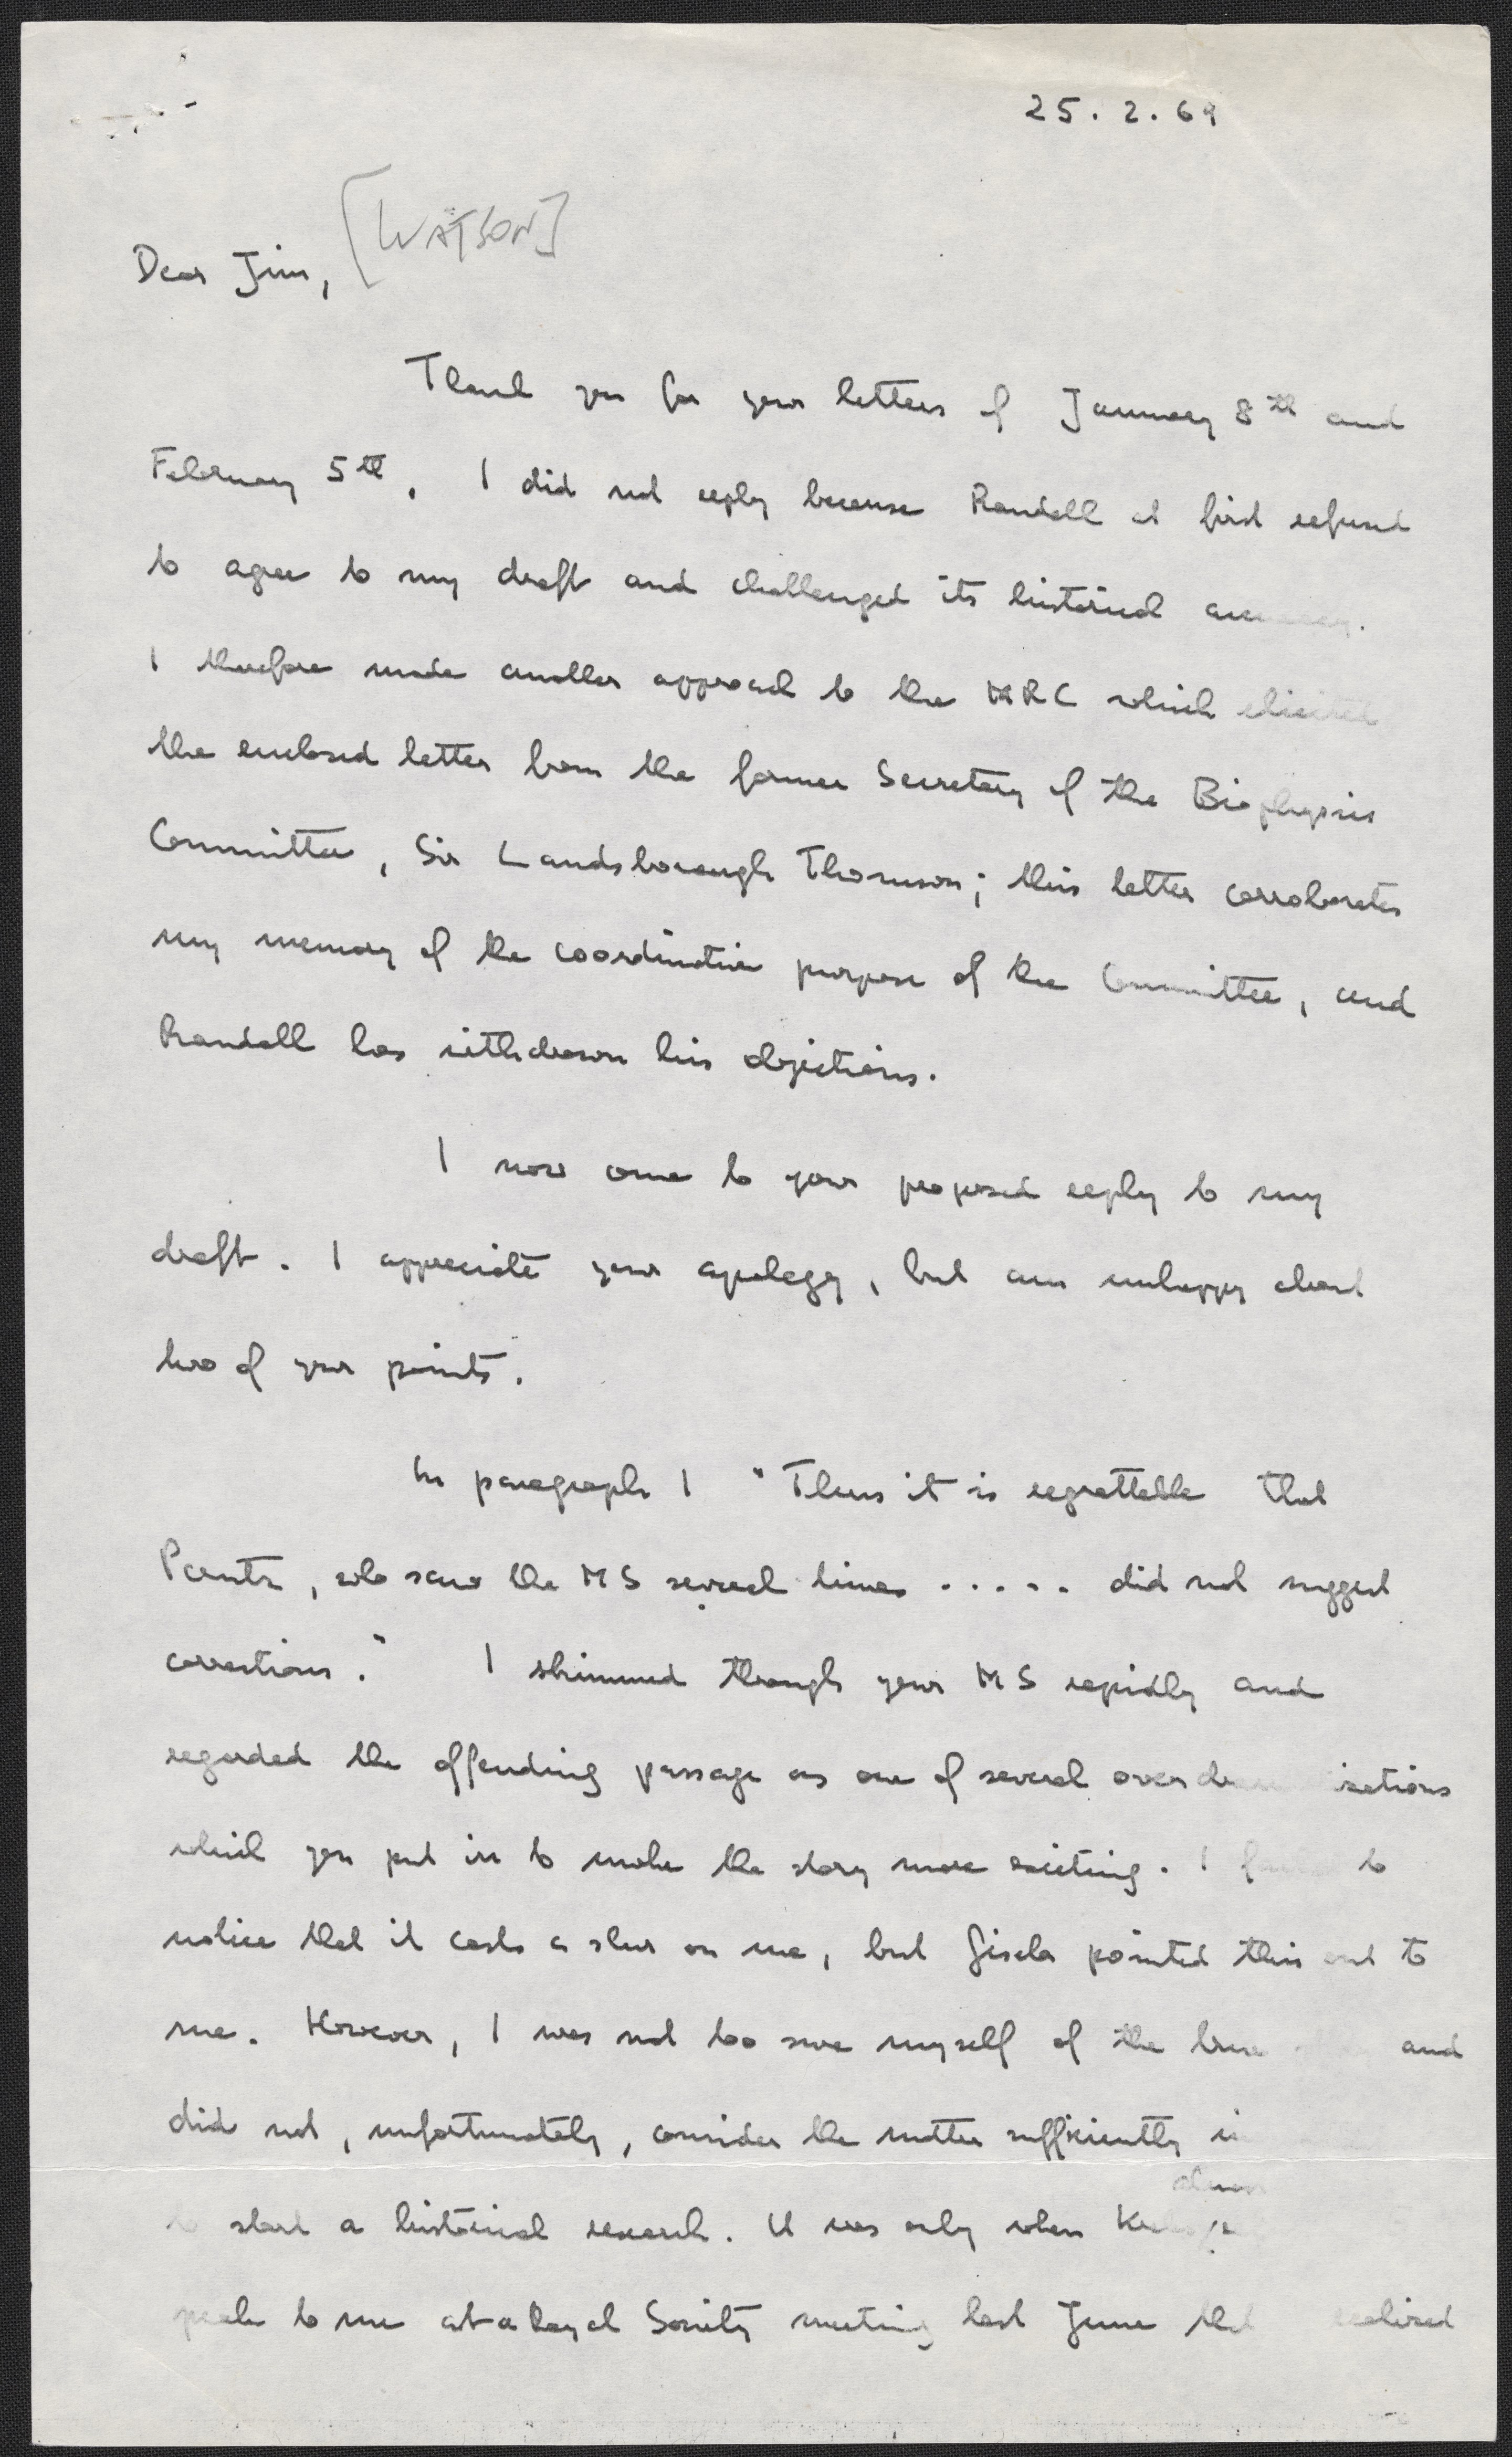 25.2.69
[WATSON]
Dear Jim,
Thank you for your letters of January 8th and
February 5th. I did not reply because Randall at first refused
to agree to my draft and challenged its historical accuracy.
I therefore made another approach to the MRC which elicited
the enclosed letter from the former Secretary of the Biophysics
Committee, Sir Landsborough Thomson; this letter corroborates
my memory of the coordinative purpose of the Committee, and
Randall has withdrawn his objections.
I now come to your proposed reply to my
draft. I appreciate your apology, but am unhappy about
two of your points.
In paragraph 1 "Thus it is regrettable that
Perutz, who saw the MS several times ..... did not suggest
corrections." I skimmed through your MS rapidly and
regarded the offending passage as one of several overdramatisations
which you put in to make the story more exciting. I failed to
notice that it casts a slur on me, but Gisela pointed this out to
me. However, I was not too sure myself of the true and
did not, unfortunately, consider the matter sufficiently
to start a historical research. It was only when
speak to me at a Royal Society meeting last June that realised